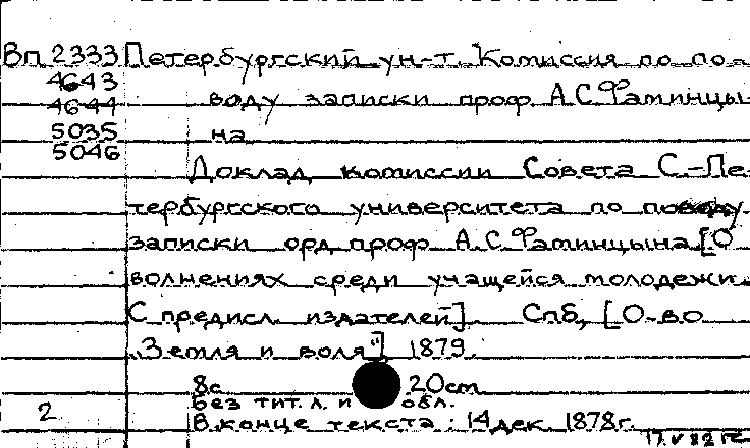 Вп 2333 Петербургский ун-т. Комиссия по по-
4643
воду записки проф. А.С. Фаминцы-
4644
5035 на
5046
Доклад комиссии Совета С.-Пе-
тербургского университета по поводу
записки орд. проф. А.С. Фаминцына. [О
волнениях среди учащейся молодежи.
С предисл. издателей]. Спб, [О-во
"Земля и воля"], 1879.
8с. 20cm
Без тит. л. и обл.
2 В конце текста: 14 дек. 1878 г.